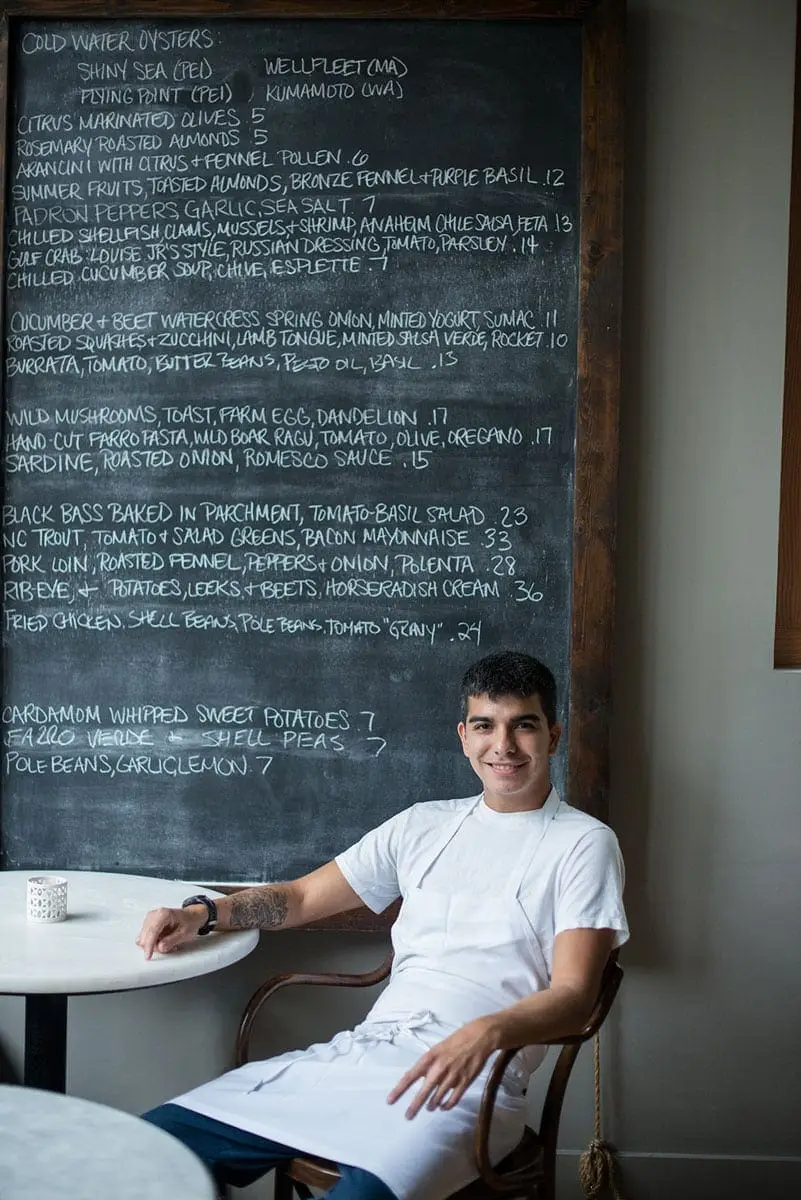 COLD WATER OYSTERS:
SHINY SEA (PEI) WELLFLEET (MA)
FLYING POINT (PEI) KUMAMOTO (WA)
CITRUS MARINATED OLIVES .5
ROSEMARY ROASTED ALMONDS .5
ARANCINI WITH CITRUS + FENNEL POLLEN .6
SUMMER FRUITS, TOASTED ALMONDS, BRONZE FENNEL + PURPLE BASIL .12
PADRON PEPPERS, GARLIC, SEA SALT .7
CHILLED SHELLFISH CLAMS, MUSSELS + SHRIMP, ANAHEIM CHILE SALSA, FETA .13
GULF CRAB: LOUISE JR'S STYLE, RUSSIAN DRESSING, TOMATO, PARSLEY .14
CHILLED CUCUMBER SOUP, CHIVE, ESPLETTE .7
CUCUMBER + BEET WATERCRESS SPRING ONION, MINTED YOGURT, SUMAC 11
ROASTED SQUASHES + ZUCCHINI, LAMB TONGUE, MINTED SALSA VERDE, ROCKET .10
BURRATA, TOMATO, BUTTER BEANS, PESTO OIL, BASIL .13
WILD MUSHROOMS, TOAST, FARM EGG, DANDELION .17
HAND-CUT FARRO PASTA, WILD BOAR RAGU, TOMATO, OLIVE, OREGANO .17
SARDINE, ROASTED ONION, ROMESCO SAUCE .15
BLACK BASS BAKED IN PARCHMENT, TOMATO-BASIL SALAD .23
NC TROUT, TOMATO + SALAD GREENS, BACON MAYONNAISE .33
PORK LOIN, ROASTED FENNEL, PEPPERS + ONION, POLENTA .28
RIB-EYE, + POTATOES, LEEKS + BEETS, HORSERADISH CREAM .36
FRIED CHICKEN, SHELL BEANS, POLE BEANS, TOMATO "GRAVY" .24
CARDAMOM WHIPPED SWEET POTATOES .7
FARRO VERDE + SHELL PEAS .7
POLE BEANS, GARLIC, LEMON .7